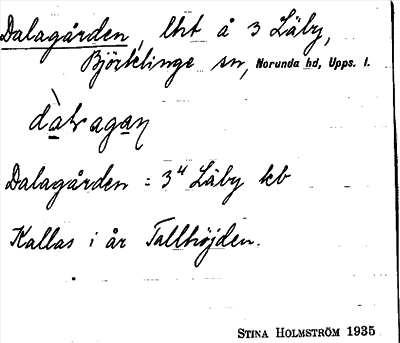 Dalagården, lht å 3 Läby,
Björklinge sn, Norunda hd, Upps. l.
Dalagården = 3⁴ Läby kb
Kallas i år Tallhöjden.
STINA HOLMSTRÖM 1935